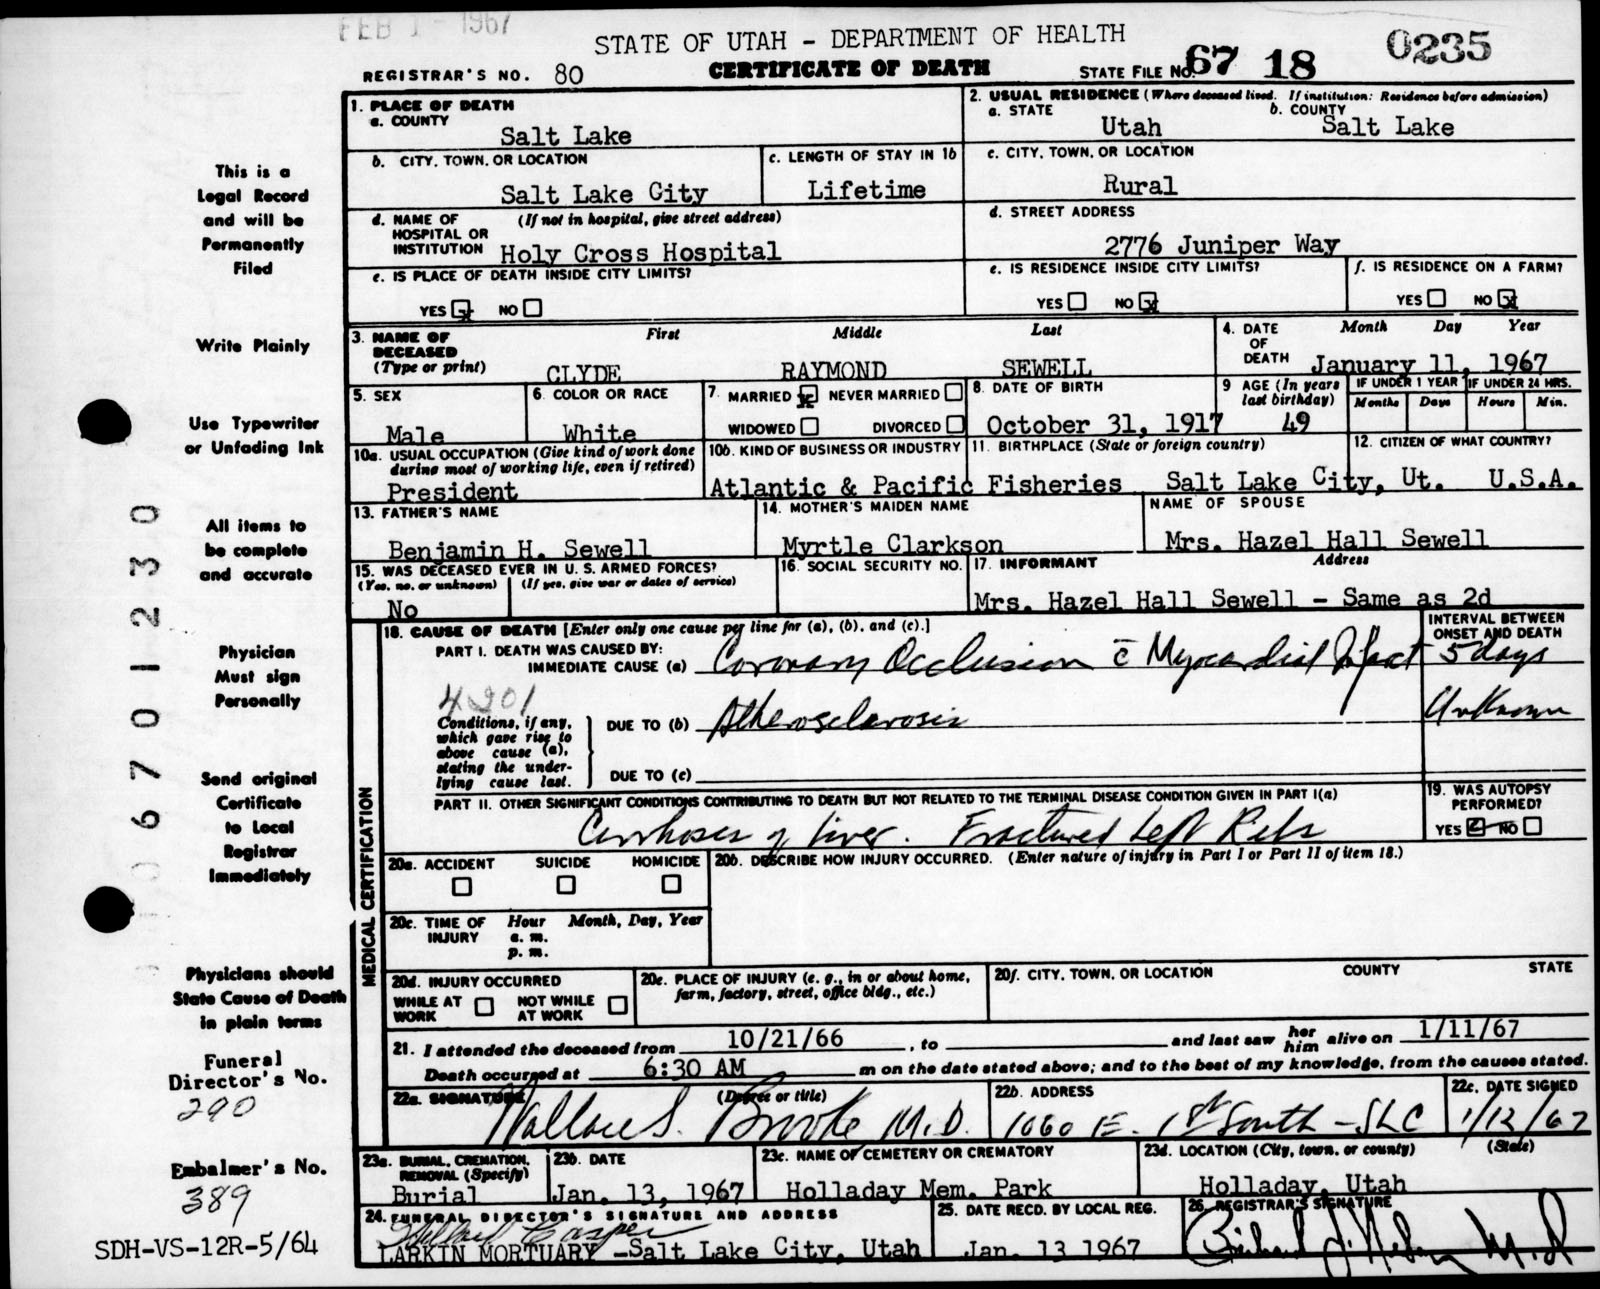 FEB 1 - 1967
STATE OF UTAH - DEPARTMENT OF HEALTH
0235
REGISTRAR'S NO. 80
CERTIFICATE OF DEATH
STATE FILE NO. 67 18
1. PLACE OF DEATH
a. COUNTY
Salt Lake
2. USUAL RESIDENCE (Where deceased lived. If institution: Residence before admission)
a. STATE
Utah
b. COUNTY
Salt Lake
b. CITY, TOWN, OR LOCATION
Salt Lake City
c. LENGTH OF STAY IN 1b
Lifetime
c. CITY, TOWN, OR LOCATION
Rural
d. NAME OF HOSPITAL OR INSTITUTION (If not in hospital, give street address)
Holy Cross Hospital
d. STREET ADDRESS
2776 Juniper Way
e. IS PLACE OF DEATH INSIDE CITY LIMITS?
YES x NO
e. IS RESIDENCE INSIDE CITY LIMITS?
YES NO x
f. IS RESIDENCE ON A FARM?
YES NO x
3. NAME OF DECEASED (Type or print)
First Middle Last
CLYDE RAYMOND SEWELL
4. DATE OF DEATH
Month Day Year
January 11, 1967
5. SEX
Male
6. COLOR OR RACE
White
7. MARRIED x NEVER MARRIED
WIDOWED DIVORCED
8. DATE OF BIRTH
October 31, 1917
9 AGE (In years last birthday)
49
IF UNDER 1 YEAR
Months Days
IF UNDER 24 HRS.
Hours Min.
10a. USUAL OCCUPATION (Give kind of work done during most of working life, even if retired)
President
10b. KIND OF BUSINESS OR INDUSTRY
Atlantic & Pacific Fisheries
11. BIRTHPLACE (State or foreign country)
Salt Lake City, Ut.
12. CITIZEN OF WHAT COUNTRY?
U.S.A.
13. FATHER'S NAME
Benjamin H. Sewell
14. MOTHER'S MAIDEN NAME
Myrtle Clarkson
NAME OF SPOUSE
Mrs. Hazel Hall Sewell
15. WAS DECEASED EVER IN U. S. ARMED FORCES?
(Yes, no, or unknown) (If yes, give war or dates of service)
No
16. SOCIAL SECURITY NO.
17. INFORMANT Address
Mrs. Hazel Hall Sewell - Same as 2d
MEDICAL CERTIFICATION
18. CAUSE OF DEATH [Enter only one cause per line for (a), (b), and (c).]
INTERVAL BETWEEN ONSET AND DEATH
PART I. DEATH WAS CAUSED BY:
IMMEDIATE CAUSE (a) Coronary Occlusion c̄ Myocardial Infact 5 days
4201
Conditions, if any, which gave rise to above cause (a), stating the underlying cause last.
DUE TO (b) Atherosclerosis Unknown
DUE TO (c)
PART II. OTHER SIGNIFICANT CONDITIONS CONTRIBUTING TO DEATH BUT NOT RELATED TO THE TERMINAL DISEASE CONDITION GIVEN IN PART I(a)
Cirrhosis of liver. Fractured Left Ribs
19. WAS AUTOPSY PERFORMED?
YES NO
20a. ACCIDENT SUICIDE HOMICIDE
20b. DESCRIBE HOW INJURY OCCURRED. (Enter nature of injury in Part I or Part II of item 18.)
20c. TIME OF INJURY Hour Month, Day, Year
a. m.
p. m.
20d. INJURY OCCURRED
WHILE AT WORK NOT WHILE AT WORK
20e. PLACE OF INJURY (e. g., in or about home, farm, factory, street, office bldg., etc.)
20f. CITY, TOWN, OR LOCATION COUNTY STATE
21. I attended the deceased from 10/21/66, to and last saw her him alive on 1/11/67
Death occurred at 6:30 AM m on the date stated above; and to the best of my knowledge, from the causes stated.
22a. SIGNATURE (Degree or title)
Wallace S. Brooke M.D.
22b. ADDRESS
1060 E. 1st South - SLC
22c. DATE SIGNED
1/12/67
23a. BURIAL, CREMATION, REMOVAL (Specify)
Burial
23b. DATE
Jan. 13, 1967
23c. NAME OF CEMETERY OR CREMATORY
Holladay Mem. Park
23d. LOCATION (City, town, or county) (State)
Holladay, Utah
24. FUNERAL DIRECTOR'S SIGNATURE AND ADDRESS
Casper
LARKIN MORTUARY - Salt Lake City, Utah
25. DATE RECD. BY LOCAL REG.
Jan. 13 1967
26. REGISTRAR'S SIGNATURE
This is a
Legal Record
and will be
Permanently
Filed
Write Plainly
Use Typewriter
or Unfading Ink
All items to
be complete
and accurate
Physician
Must sign
Personally
Send original
Certificate
to Local
Registrar
Immediately
Physicians should
State Cause of Death
in plain terms
Funeral
Director's No.
290
Embalmer's No.
389
SDH-VS-12R-5/64
0 6 7 0 1 2 3 0